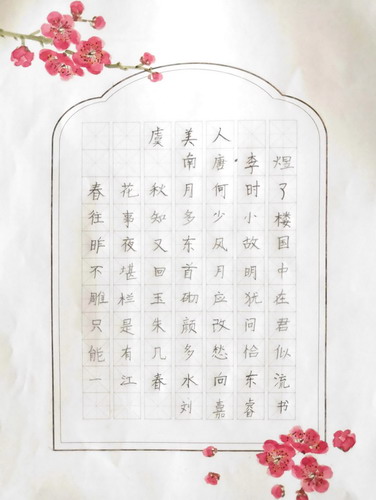 虞美人
南唐·李煜
春花秋月何时了
往事知多少小楼
昨夜又东风故国
不堪回首月明中
雕栏玉砌应犹在
只是朱颜改问君
能有几多愁恰似
一江春水向东流
刘嘉睿书